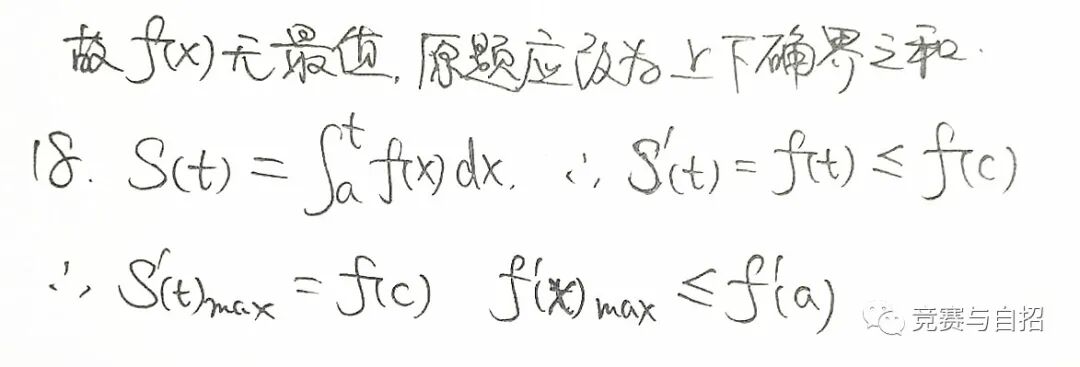 故 f(x) 无最值, 原题应改为上下确界之和.
18. S(t) = ∫ₐᵗ f(x) dx. ∴ S'(t) = f(t) ≤ f(c)
∴ S'(t)max = f(c) f'(x)max ≤ f'(a)
竞赛与自招